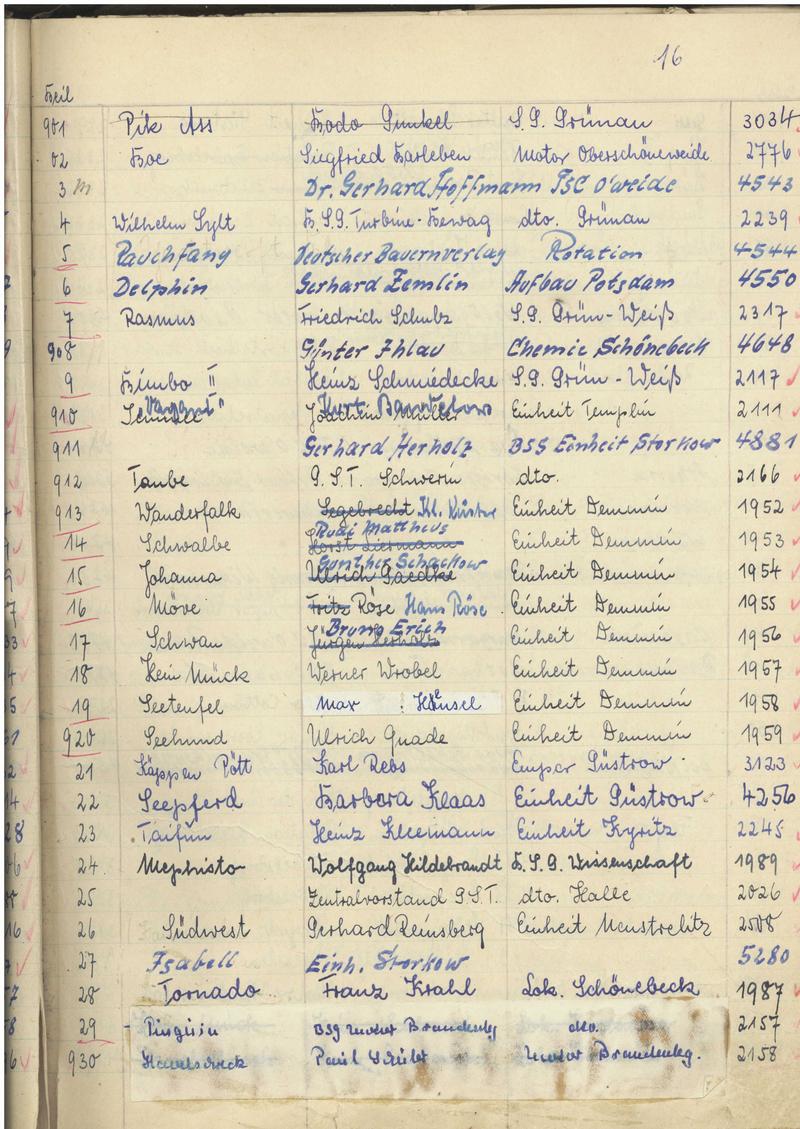 16
901 Pik Ass Bodo Gunkel S.G. Grünau 3034
02 Boe Siegfried Barleben Motor Oberschöneweide 2776
3 M Dr. Gerhard Hoffmann TSC O'weide 4543
4 Wilhelm Sylt B.S.G. Turbine-Bewag dto. Grünau 2239
5 Rauchfang Deutscher Bauernverlag Rotation 4544
6 Delphin Gerhard Zemlin Aufbau Potsdam 4550
7 Rasmus Friedrich Schulz S.G. Grün-Weiß 2317
908 Günter Ihlau Chemie Schönebeck 4648
9 Bimbo II Heinz Schmiedecke S.G. Grün-Weiß 2117
910 Kurt Joachim Müller Einheit Templin 2111
911 Gerhard Herholz BSG Einheit Storkow 4881
912 Taube G.S.T. Schwerin dto. 2166
913 Wanderfalk Segebrecht Kl. Küster Einheit Demmin 1952
Rudi Mattheus
14 Schwalbe Horst Einheit Demmin 1953
Günther Schackow
15 Johanna Ulrich Gaedke Einheit Demmin 1954
16 Möve Fritz Röse Hans Röse Einheit Demmin 1955
Bruno Erich
17 Schwan Jürgen Herholz Einheit Demmin 1956
18 Hein Mück Werner Wrobel Einheit Demmin 1957
19 Seeteufel Max Hänsel Einheit Demmin 1958
920 Seehund Ulrich Quade Einheit Demmin 1959
21 Käppen Pött Karl Rebs Empor Güstrow 3123
22 Seepferd Barbara Klaas Einheit Güstrow 4256
23 Taifun Heinz Kleemann Einheit Kyritz 2245
24 Mephisto Wolfgang Hildebrandt B.S.G. Wissenschaft 1989
25 Zentralvorstand G.S.T. dto. Halle 2026
26 Südwest Gerhard Reinsberg Einheit Neustrelitz 2508
27 Isabell Einh. Storkow 5280
28 Tornado Franz Krahl Lok. Schönebeck 1987
29 - Pinguin BSG Motor Brandenbg dto. 2157
930 Paul Motor Brandenbg. 2158